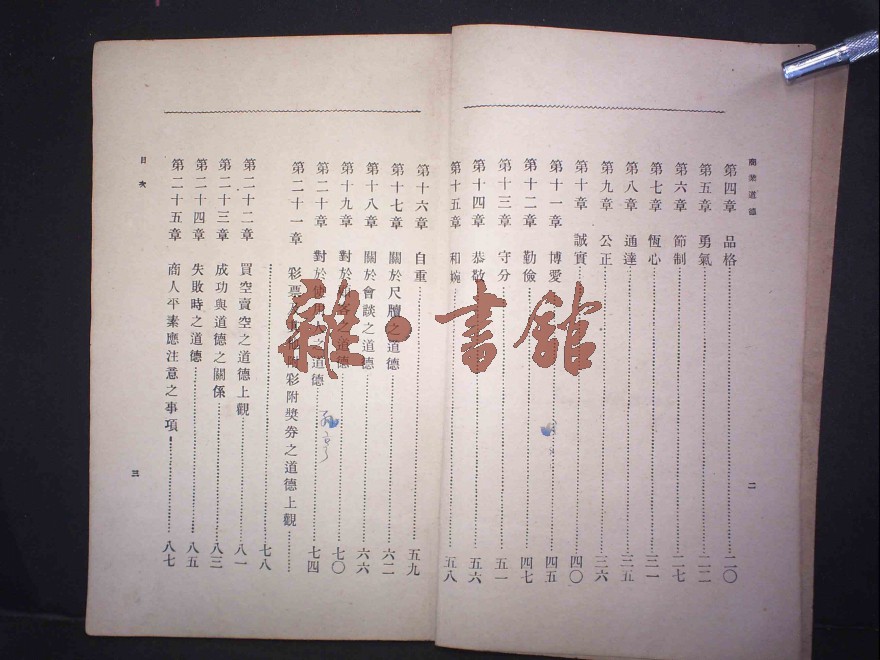 商業道德
第四章 品格 二〇
第五章 勇氣 二二
第六章 節制 二七
第七章 恆心 三一
第八章 通達 三五
第九章 公正 三六
第十章 誠實 四〇
第十一章 博愛 四五
第十二章 勤儉 四七
第十三章 守分 五一
第十四章 恭敬 五六
第十五章 和婉 五八
二
第十六章 自重 五九
第十七章 關於尺牘之道德 六二
第十八章 關於會談之道德 六六
第十九章 對於 客之道德 七〇
第二十章 對於使用人之道德 七四
第二十一章 彩票 附彩附獎券之道德上觀
七八
第二十二章 買空賣空之道德上觀 八一
第二十三章 成功與道德之關係 八三
第二十四章 失敗時之道德 八五
第二十五章 商人平素應注意之事項 八七
目次
三
雜·書館